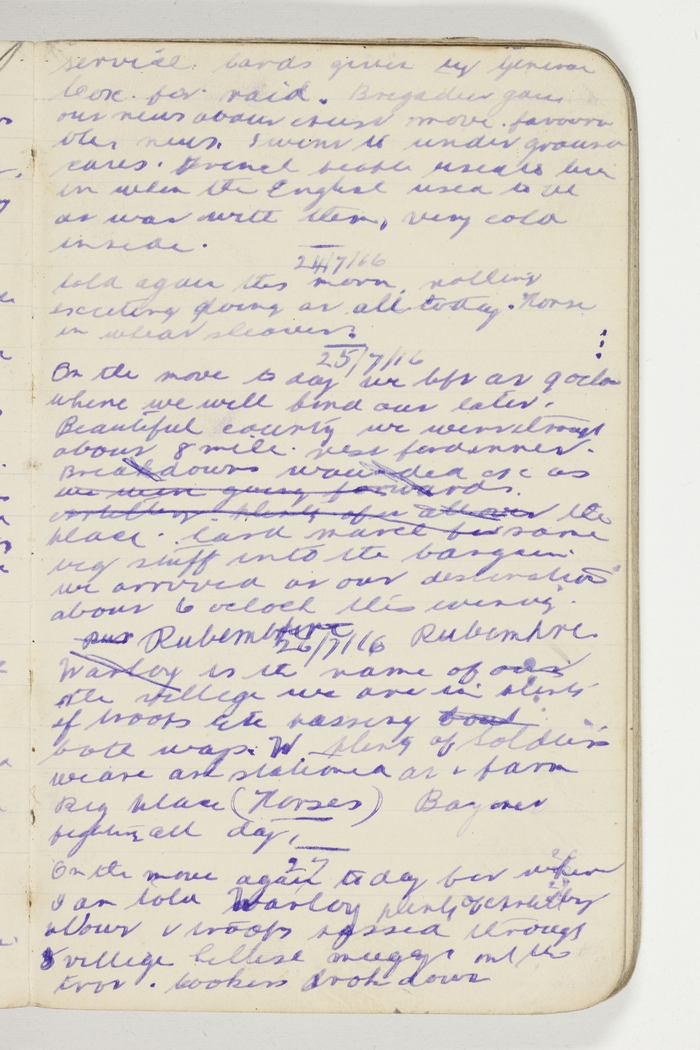 service. Cards given by General
Cox. for raid. Brigadier gave
our news about move. favoura
bles news. I went to under ground
caves. French people used to live
in when the English used to be
at war with them, very cold
inside.
24/7/16
Cold again this morn, nothing
exciting doing at all today. Horse
in wheat sheaves.
25/7/16
On the move to day we left at 9 oclo
where we will bend our later.
Beautiful country we went through
about 8 mile. rest for dinner.
Breakdowns wounded etc as
we were going forwards.
Artillery. plenty of it about the
place. Hard march for some
big stuff into the bargain.
we arrived at our destination
about 6 oclock this evening.
Rubembre
26/7/16 Rubembre
Warloy is the name of our
the village we are in plenty
of troops etc passing
both ways. plenty of soldiers
we are all stationed at a farm
Big place (Horses) Bayonet
fighting all day.
27
On the move again today but where
I am told Warloy plenty of artillery
about & troops passed through
village
trot. Cookers broke down